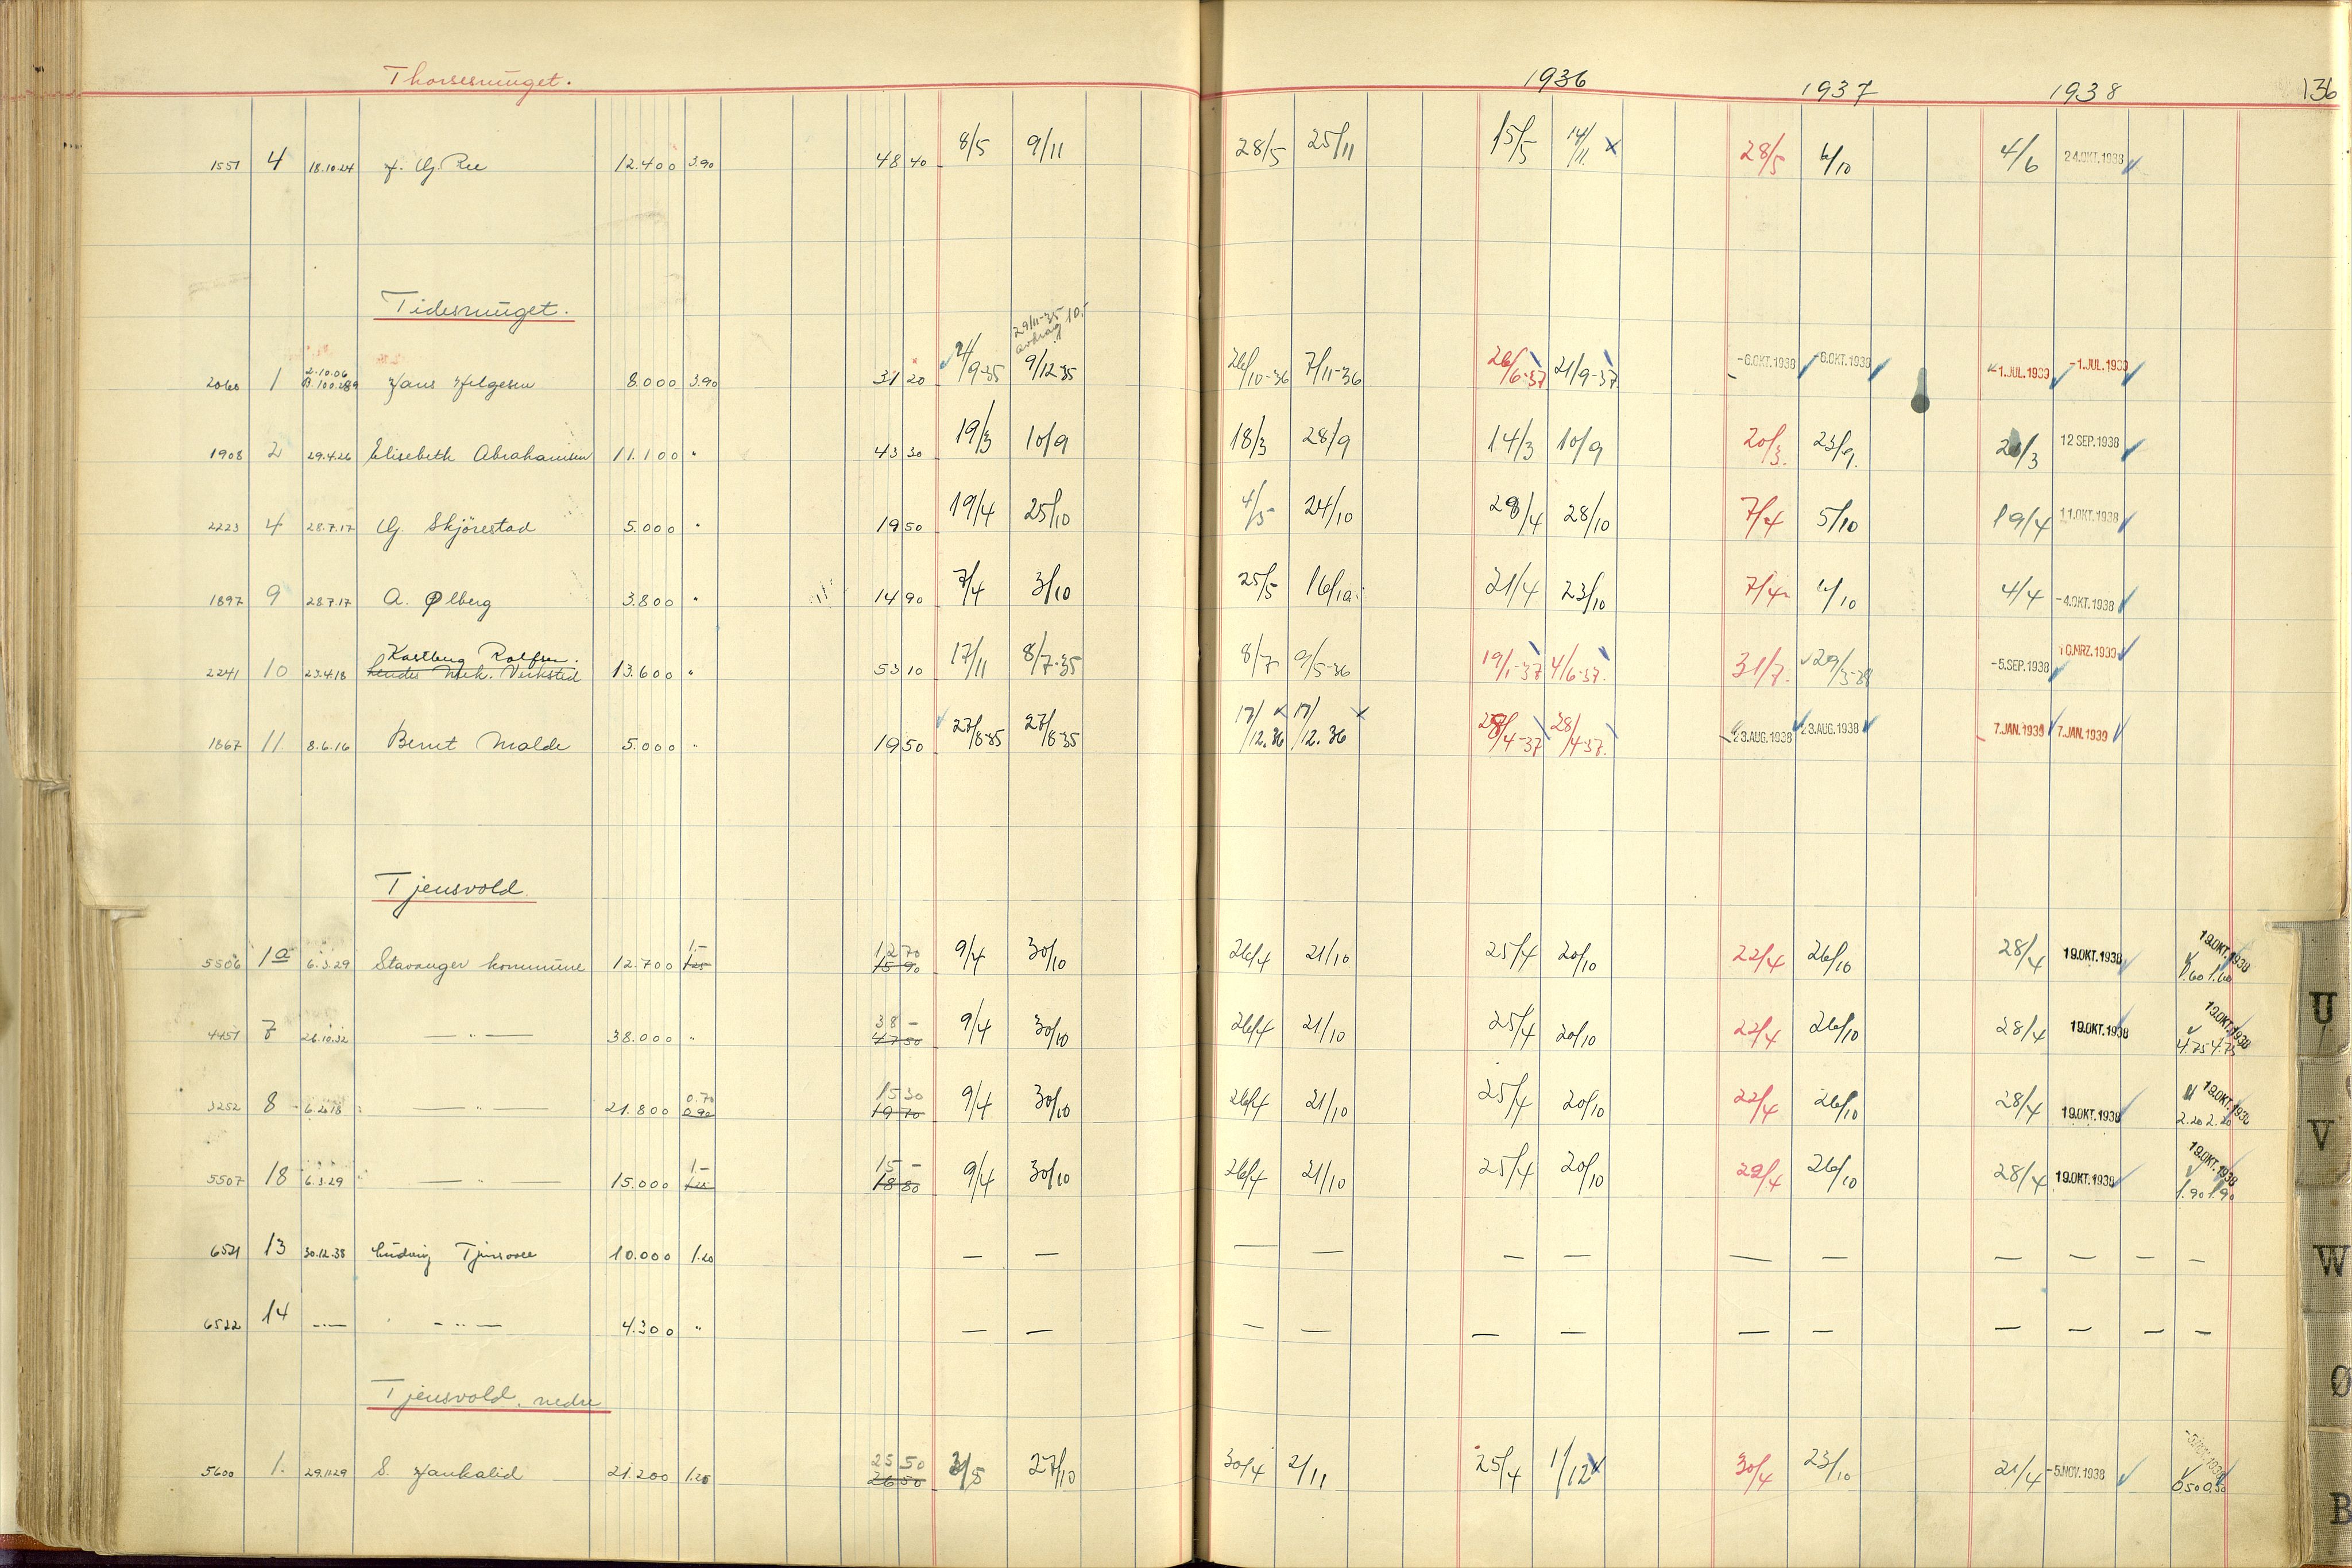 Thorsesmuget. 1936 1937 1938 136
1551 4 18.10.24 12.400 3.90 48 40 8/5 9/11 28/5 25/11 15/5 14/11. x 28/5 6/10 4/6 24.OKT.1938
Tidesmuget.
29/11-35 avdrag 10.-
2060 1 2.10.06 Hans Helgesen 8.000 3.90 31 20 9-35 9/12-35 26/10-36 7/11-36 26/6-37 21/9-37 -6.OKT.1938 -6.OKT.1938 -1.JUL.1939 -1.JUL.1939
1908 2 29.4.26 Elisebeth Abrahamsen 11.100 " 43 30 19/3 10/9 18/3 28/9 14/3 10/9 20/3. 23/9. 12 SEP.1938
2223 4 28.7.17 G. Skjörestad 5.000 " 19 50 19/4 25/10 4/5 24/10 28/4 28/10 7/4 5/10 19/4 11.OKT.1938
1897 9 28.7.17 A. Ølberg 3.800 " 14 90 7/4 3/10 25/5 16/10. 21/4 23/10 7/4 4/10 -4.OKT.1938
Kastberg Rolfsen.
2241 10 23.4.18 Mek. Verksted 13.600 " 53 10 17/11 8/7-35 8/7 9/5-36 19/1-37 4/6-37. 31/7. 29/3-38 -5.SEP.1938 10.MRZ.1939
1867 11 8.6.16 Bernt Malde 5.000 " 19 50 27/8-35 27/8-35 17/12.36 x 17/12.36 x 28/4-37 28/4-37. 23.AUG.1938 23.AUG.1938 7.JAN.1939 7.JAN.1939
Tjensvold.
5506 1a 6.3.29 Stavanger kommune 12.700 1.- 1.25 12 70 15 90 9/4 30/10 26/4 21/10 25/4 20/10 22/4 26/10 28/4 19.OKT.1938 19.OKT.1938 1.60 1.60
4451 7 26.10.32 — " — 38.000 " 38 - 47 50 9/4 30/10 26/4 21/10 25/4 20/10 22/4 26/10 28/4 19.OKT.1938 19.OKT.1938 4.75 4.75
3252 8 — " — 21.800 0.70 0.90 15 30 19 70 9/4 30/10 26/4 21/10 25/4 20/10 22/4 26/10 28/4 19.OKT.1938 19.OKT.1938 2.20 2.20
5507 18 6.3.29 — " — 15.000 1.- 1.25 15 - 18 80 9/4 30/10 26/4 21/10 25/4 20/10 22/4 26/10 28/4 19.OKT.1938 19.OKT.1938 1.90 1.90
6521 13 30.12.38 Ludvig 10.000 1.20 — — — — — — — — — — — —
6522 14 — " — — " — 4.300 " — — — — — — — — — — — —
Tjensvold, nedre
5600 1. 29.11.29 S. Haukalid 21.200 1.25 25 50 26 50 27/10 30/4 2/11 25/4 1/12 x 30/4 23/10 21/4 -5.NOV.1938 0.50 0.50
U
V
W
Ø
B